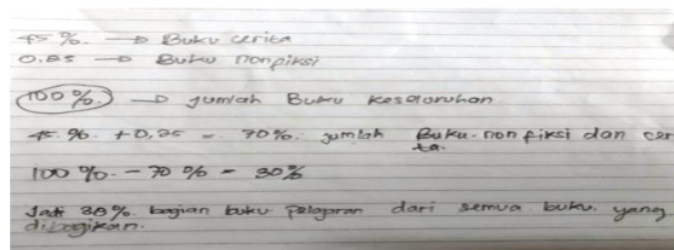 45 %. → Buku cerita
0.25 → Buku nonpiksi
100 %. → jumlah Buku keseluruhan
45 %. + 0,25 = 70%. jumlah Buku. non fiksi dan cer
ta.
100 %. - 70 % = 30%
Jadi 30%. bagian buku pelajaran dari semua buku. yang
dibagikan.